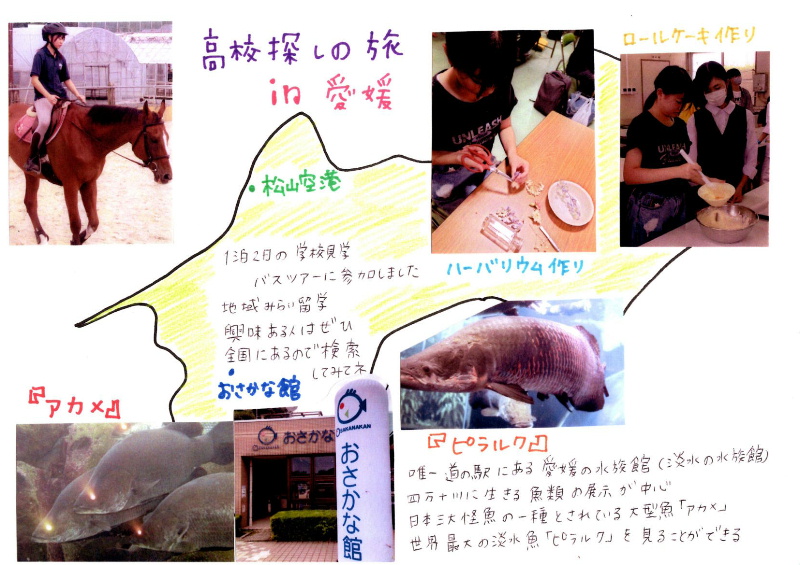 高校探しの旅
in 愛媛
ロールケーキ作り
UNLEASH
ハーバリウム作り
・松山空港
1泊2日の学校見学
バスツアーに参加しました
地域みらい留学
興味ある人はぜひ
全国にあるので検索
してみてネ
・おさかな館
『アカメ』
OSAKANAKAN
おさかな館
『ピラルク』
唯一道の駅にある愛媛の水族館(淡水の水族館)
四万十川に生きる魚類の展示が中心
日本三大怪魚の一種とされている大型魚「アカメ」
世界最大の淡水魚「ピラルク」を見ることができる